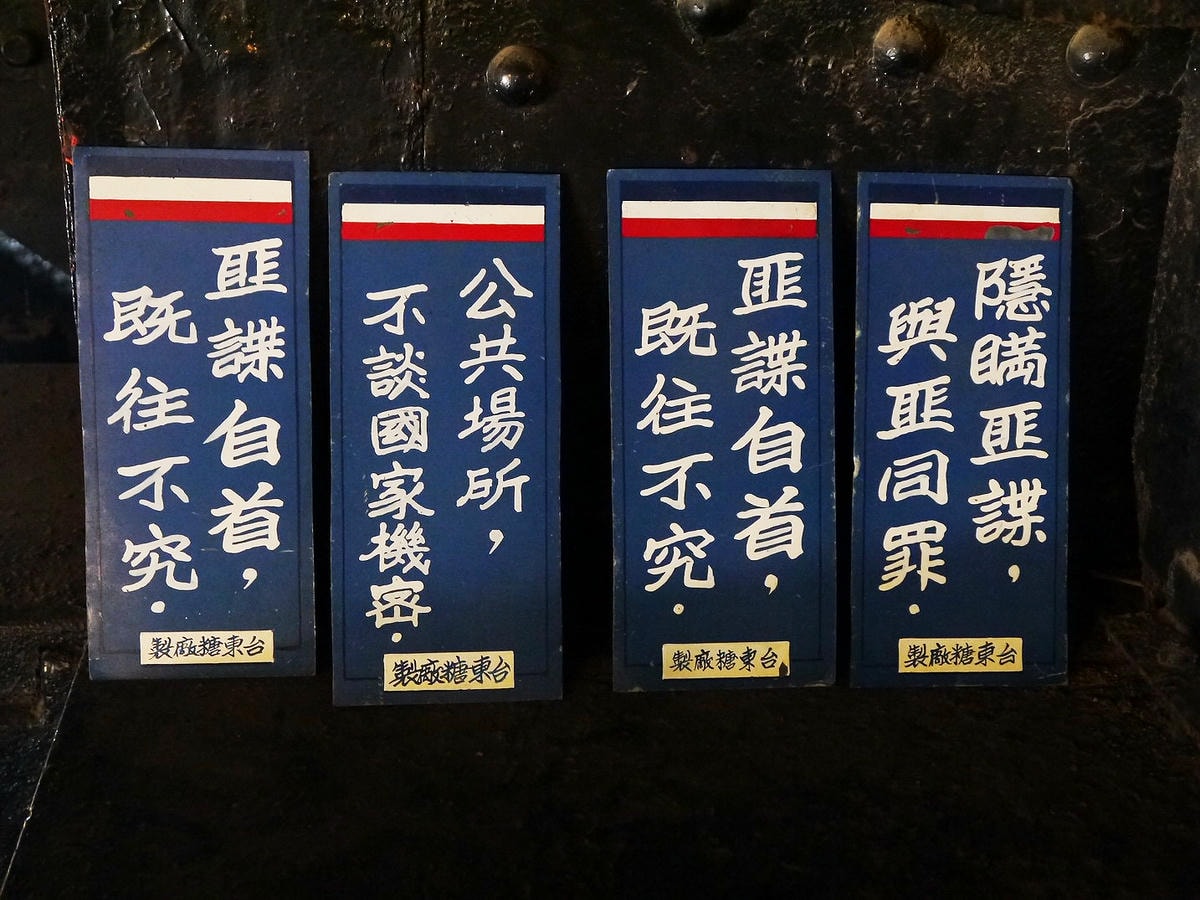 匪諜自首，
既往不究．
台東糖廠製
公共場所，
不談國家機密．
台東糖廠製
匪諜自首，
既往不究．
台東糖廠製
隱瞞匪諜，
與匪同罪．
台東糖廠製